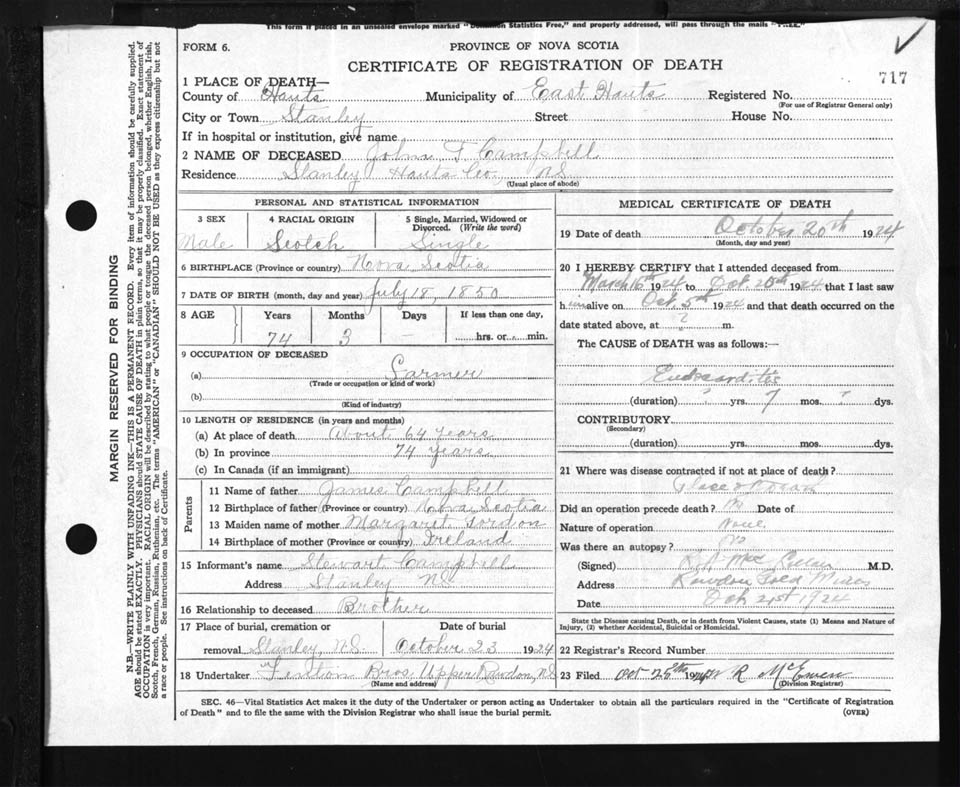 This form if placed in an unsealed envelope marked "Dominion Statistics Free," and properly addressed, will pass through the mails "FREE."
FORM 6.
PROVINCE OF NOVA SCOTIA
CERTIFICATE OF REGISTRATION OF DEATH
717
1 PLACE OF DEATH—
County of Hants Municipality of East Hants Registered No.
(For use of Registrar General only)
City or Town Stanley Street House No.
If in hospital or institution, give name
2 NAME OF DECEASED John F Campbell
Residence Stanley Hants Co., N.S.
(Usual place of abode)
PERSONAL AND STATISTICAL INFORMATION
3 SEX 4 RACIAL ORIGIN 5 Single, Married, Widowed or Divorced. (Write the word)
Male Scotch Single
6 BIRTHPLACE (Province or country) Nova Scotia
7 DATE OF BIRTH (month, day and year) July 18, 1850
8 AGE Years Months Days If less than one day,
74 3 hrs. or min.
9 OCCUPATION OF DECEASED
(a) Farmer
(Trade or occupation or kind of work)
(b)
(Kind of industry)
10 LENGTH OF RESIDENCE (in years and months)
(a) At place of death About 64 years
(b) In province 74 years
(c) In Canada (if an immigrant)
Parents
11 Name of father James Campbell
12 Birthplace of father (Province or country) Nova Scotia
13 Maiden name of mother Margaret Gordon
14 Birthplace of mother (Province or country) Ireland
15 Informant's name Stewart Campbell
Address Stanley N.S.
16 Relationship to deceased Brother
17 Place of burial, cremation or removal Date of burial
Stanley, N.S. October 23 1924
18 Undertaker Fenton Bros Upper Rawdon, N.S.
(Name and address)
MEDICAL CERTIFICATE OF DEATH
19 Date of death October 20th 1924
(Month, day and year)
20 I HEREBY CERTIFY that I attended deceased from
March 16th 1924 to Oct 20th 1924 that I last saw
him alive on Oct. 5th 1924 and that death occurred on the
date stated above, at ? m.
The CAUSE of DEATH was as follows:—
Endocarditis
(duration) ? yrs. 7 mos. ? dys.
CONTRIBUTORY
(Secondary)
(duration) yrs. mos. dys.
21 Where was disease contracted if not at place of death?
Place of death
Did an operation precede death? Date of
Nature of operation None
Was there an autopsy? No
(Signed) M.D.
Address Rawdon Gold Mines
Date Oct 21st 1924
State the Disease causing Death, or in death from Violent Causes, state (1) Means and Nature of Injury, (2) whether Accidental, Suicidal or Homicidal.
22 Registrar's Record Number
23 Filed Oct 25th 1924 R McEwen
(Division Registrar)
SEC. 46—Vital Statistics Act makes it the duty of the Undertaker or person acting as Undertaker to obtain all the particulars required in the "Certificate of Registration
of Death" and to file the same with the Division Registrar who shall issue the burial permit.
(OVER)
MARGIN RESERVED FOR BINDING
N.B.—WRITE PLAINLY WITH UNFADING INK—THIS IS A PERMANENT RECORD. Every item of information should be carefully supplied.
AGE should be stated EXACTLY. PHYSICIANS should STATE CAUSE OF DEATH in plain terms, so that it may be properly classified. Exact statement of
OCCUPATION is very important. RACIAL ORIGIN will be described by stating to what people or tongue the deceased person belonged, whether English, Irish,
Scotch, French, German, Russian, Ruthenian, etc. The terms "AMERICAN" or "CANADIAN" SHOULD NOT BE USED as they express citizenship but not
a race or people. See instructions on back of Certificate.